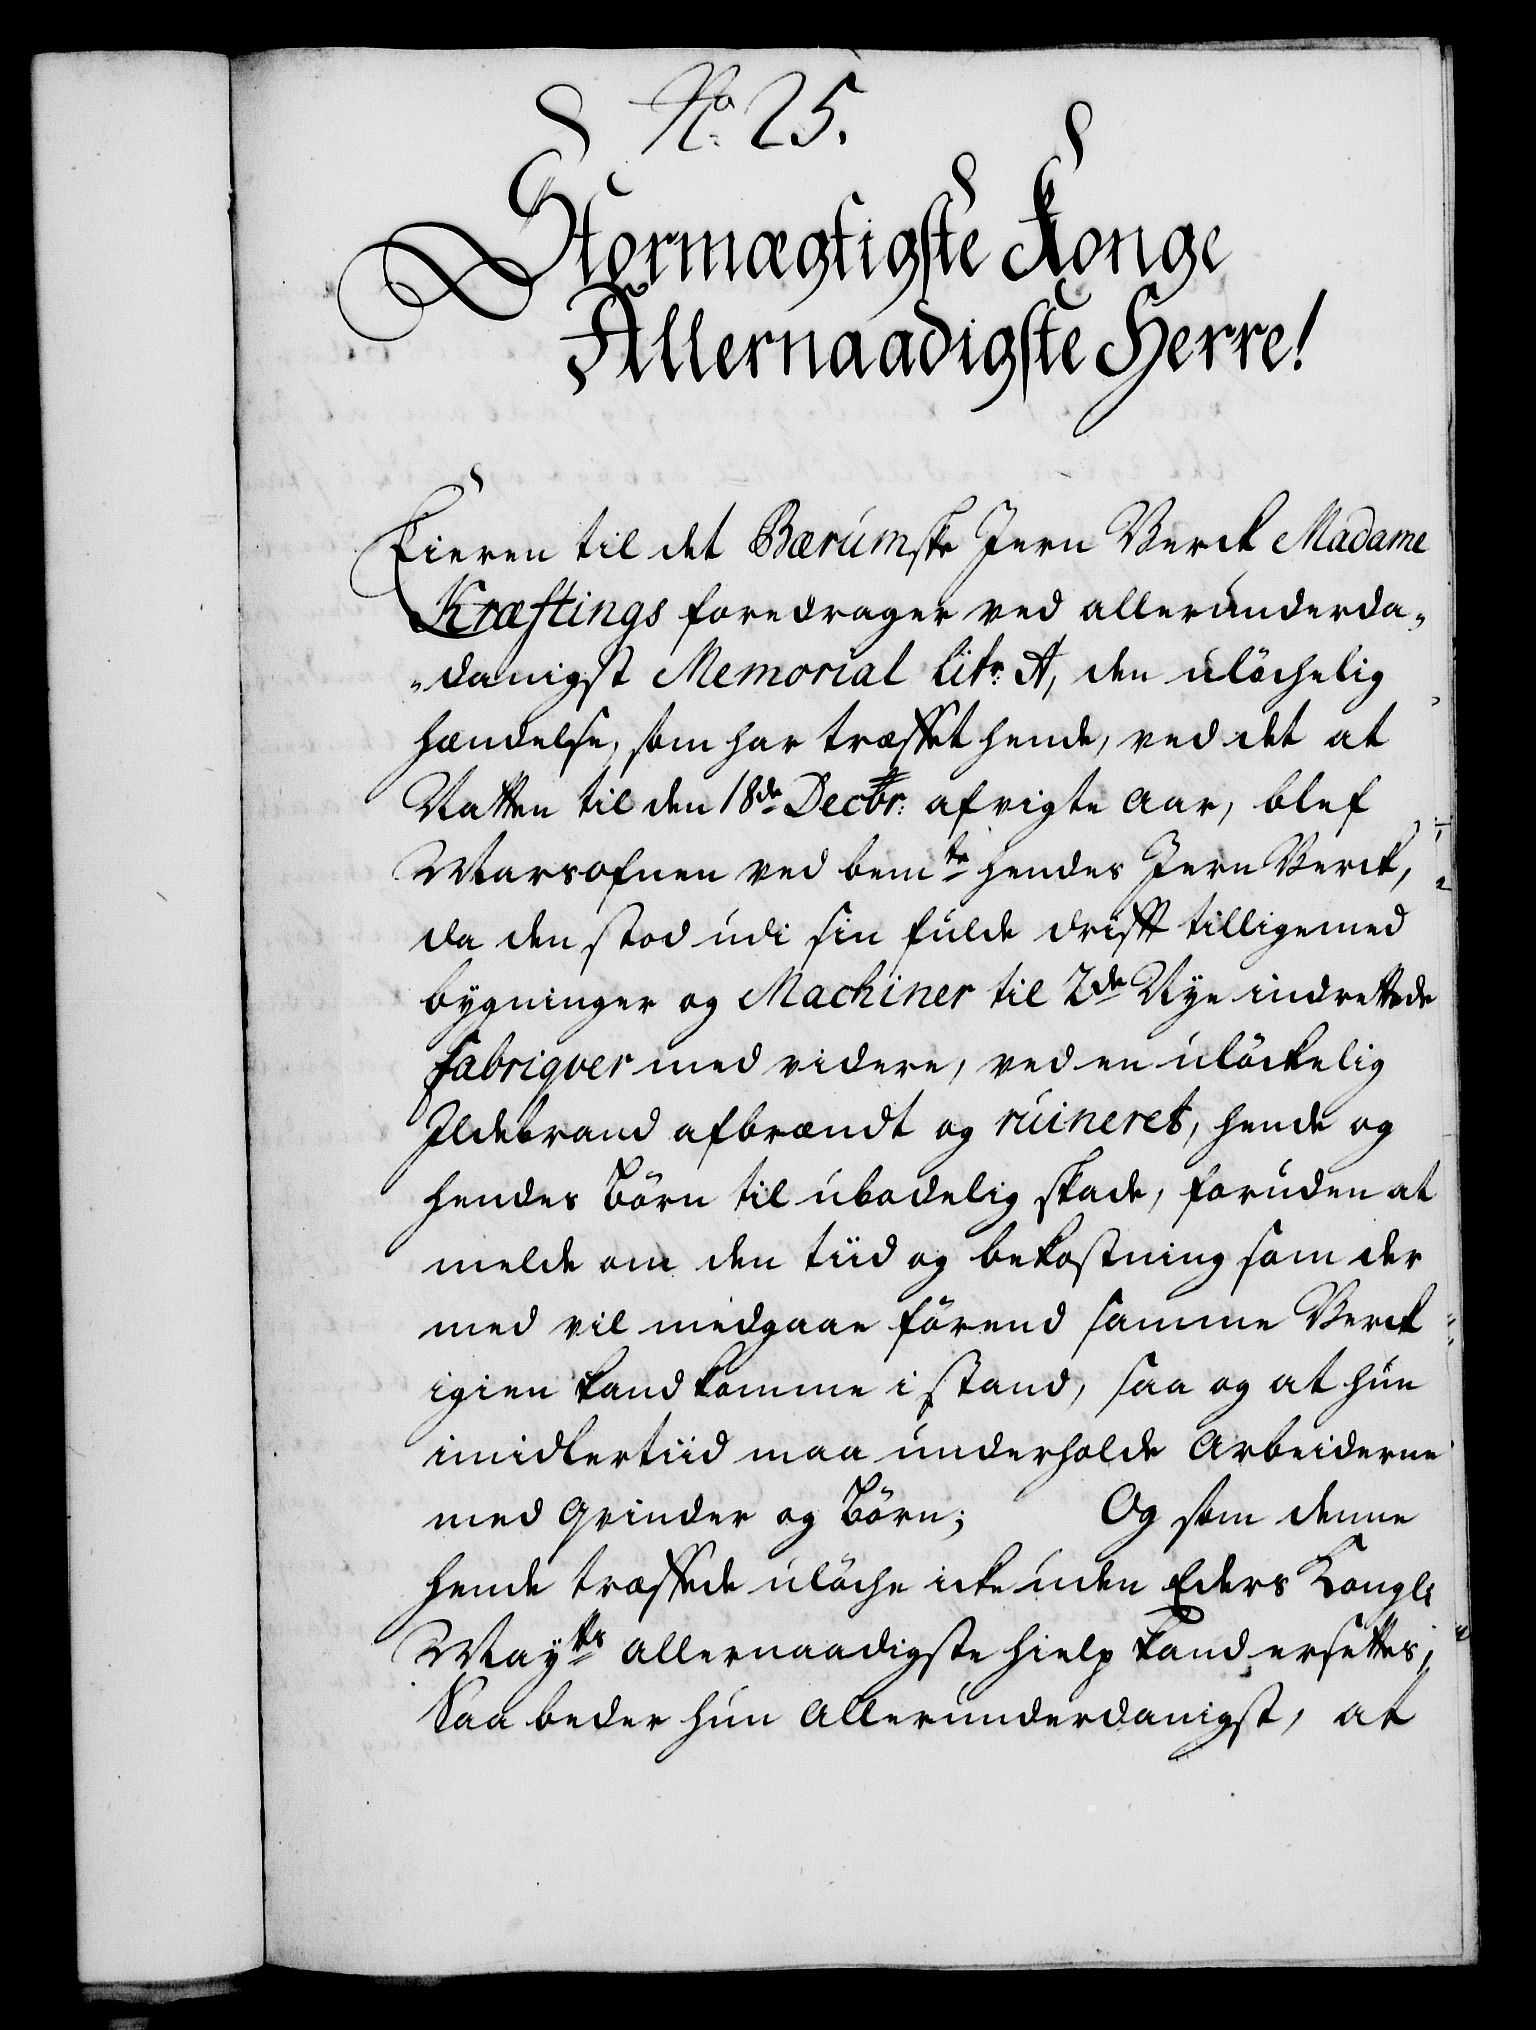 No. 25.
Stormægtigste Konge
Allernaadigste Herre!
Eieren til det Bærumske Jern Verck Madame
Kræftings foredrager ved allerunderda„
„danigst Memorial litr. A, den ulöchelig
hændelse, som har træffet hende, ved det at
Natten til den 18de Decbr. afvigte Aar, blef
Marsofnen ved bemte hendes Jern Verck,
da den stod udi sin fulde drifft tilligemed
bygninger og Machiner til 2de Nye indrettede
fabriqver med videre, ved en ulöckelig
Ildebrand afbrændt og ruineret, hende og
hendes Börn til ubodelig skade, foruden at
melde om den tiid og bekostning som der
med vil medgaae förend samme Verck
igien kand komme i stand, saa og at hun
imidlertiid maa underholde Arbeiderne
med Qvinder og Börn; Og som denne
hende træffede ulöche icke uden Eders Kongl:
Mayts allernaadigste hielp kand ersettes;
Saa beder hun allerunderdanigst, at